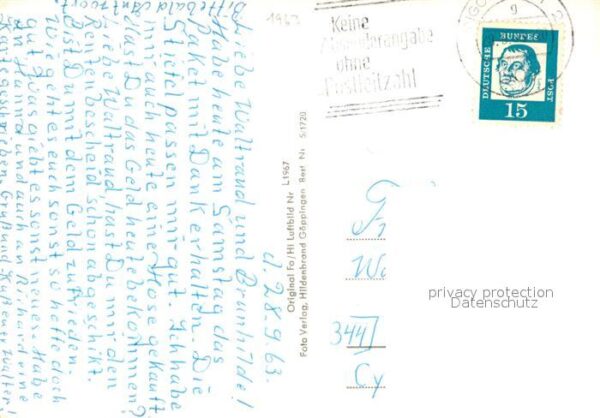 U. 28.9.63.
Liebe Waltraud und Brunhilde!
Habe heute am Samstag das
Paket mit Dank erhalten. Die
Stiefel passen mir gut. Ich habe
mir auch heute eine Hose gekauft
Hast Du das Geld heute bekommen?
Liebe Waltraud, hast Du mir den
Rentenbescheid schon abgeschikt.
Bist Du mit dem Geld zufrieden
Wie geht es euch sonst so hoffe doch
gut. Was giebt es sonst neues. Habe
an Hanna und auch an Richard eine
Karte geschrieben. Gruß und Kuß euer Walter!
Bitte bald Antwort.
1963
Keine
ohne
Postleitzahl
9
DEUTSCHE
BUNDES
POST
15
Original Fo/Hi Luftbild Nr L1967
Foto Verlag, Hildenbrand Göppingen Best Nr 5/1720
Fr
We
3441
Cy
privacy protection
Datenschutz